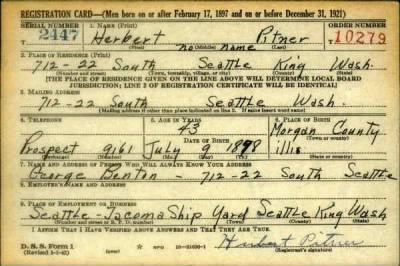 REGISTRATION CARD—(Men born on or after February 17, 1897 and on or before December 31, 1921)
SERIAL NUMBER 1. NAME (Print) ORDER NUMBER
2447 Herbert no name Pitner 10279
(First) (Middle) (Last)
2. PLACE OF RESIDENCE (Print)
712-22 South Seattle King Wash.
(Number and street) (Town, township, village, or city) (County) (State)
[THE PLACE OF RESIDENCE GIVEN ON THE LINE ABOVE WILL DETERMINE LOCAL BOARD
JURISDICTION; LINE 2 OF REGISTRATION CERTIFICATE WILL BE IDENTICAL]
3. MAILING ADDRESS
712-22 South Seattle Wash.
[Mailing address if other than place indicated on line 2. If same insert word same]
4. TELEPHONE 5. AGE IN YEARS 6. PLACE OF BIRTH
43 Morgan County
DATE OF BIRTH (Town or county)
Prospect 9161 July 9 1898 Illis
(Exchange) (Number) (Mo.) (Day) (Yr.) (State or country)
7. NAME AND ADDRESS OF PERSON WHO WILL ALWAYS KNOW YOUR ADDRESS
George Benton - 712-22 South Seattle
8. EMPLOYER'S NAME AND ADDRESS
Seattle-Tacoma Ship Yard Seattle King Wash
9. PLACE OF EMPLOYMENT OR BUSINESS
(Number and street or R. F. D. number) (Town) (County) (State)
I AFFIRM THAT I HAVE VERIFIED ABOVE ANSWERS AND THAT THEY ARE TRUE.
D. S. S. Form 1
Herbert Pitner
(Registrant's signature)